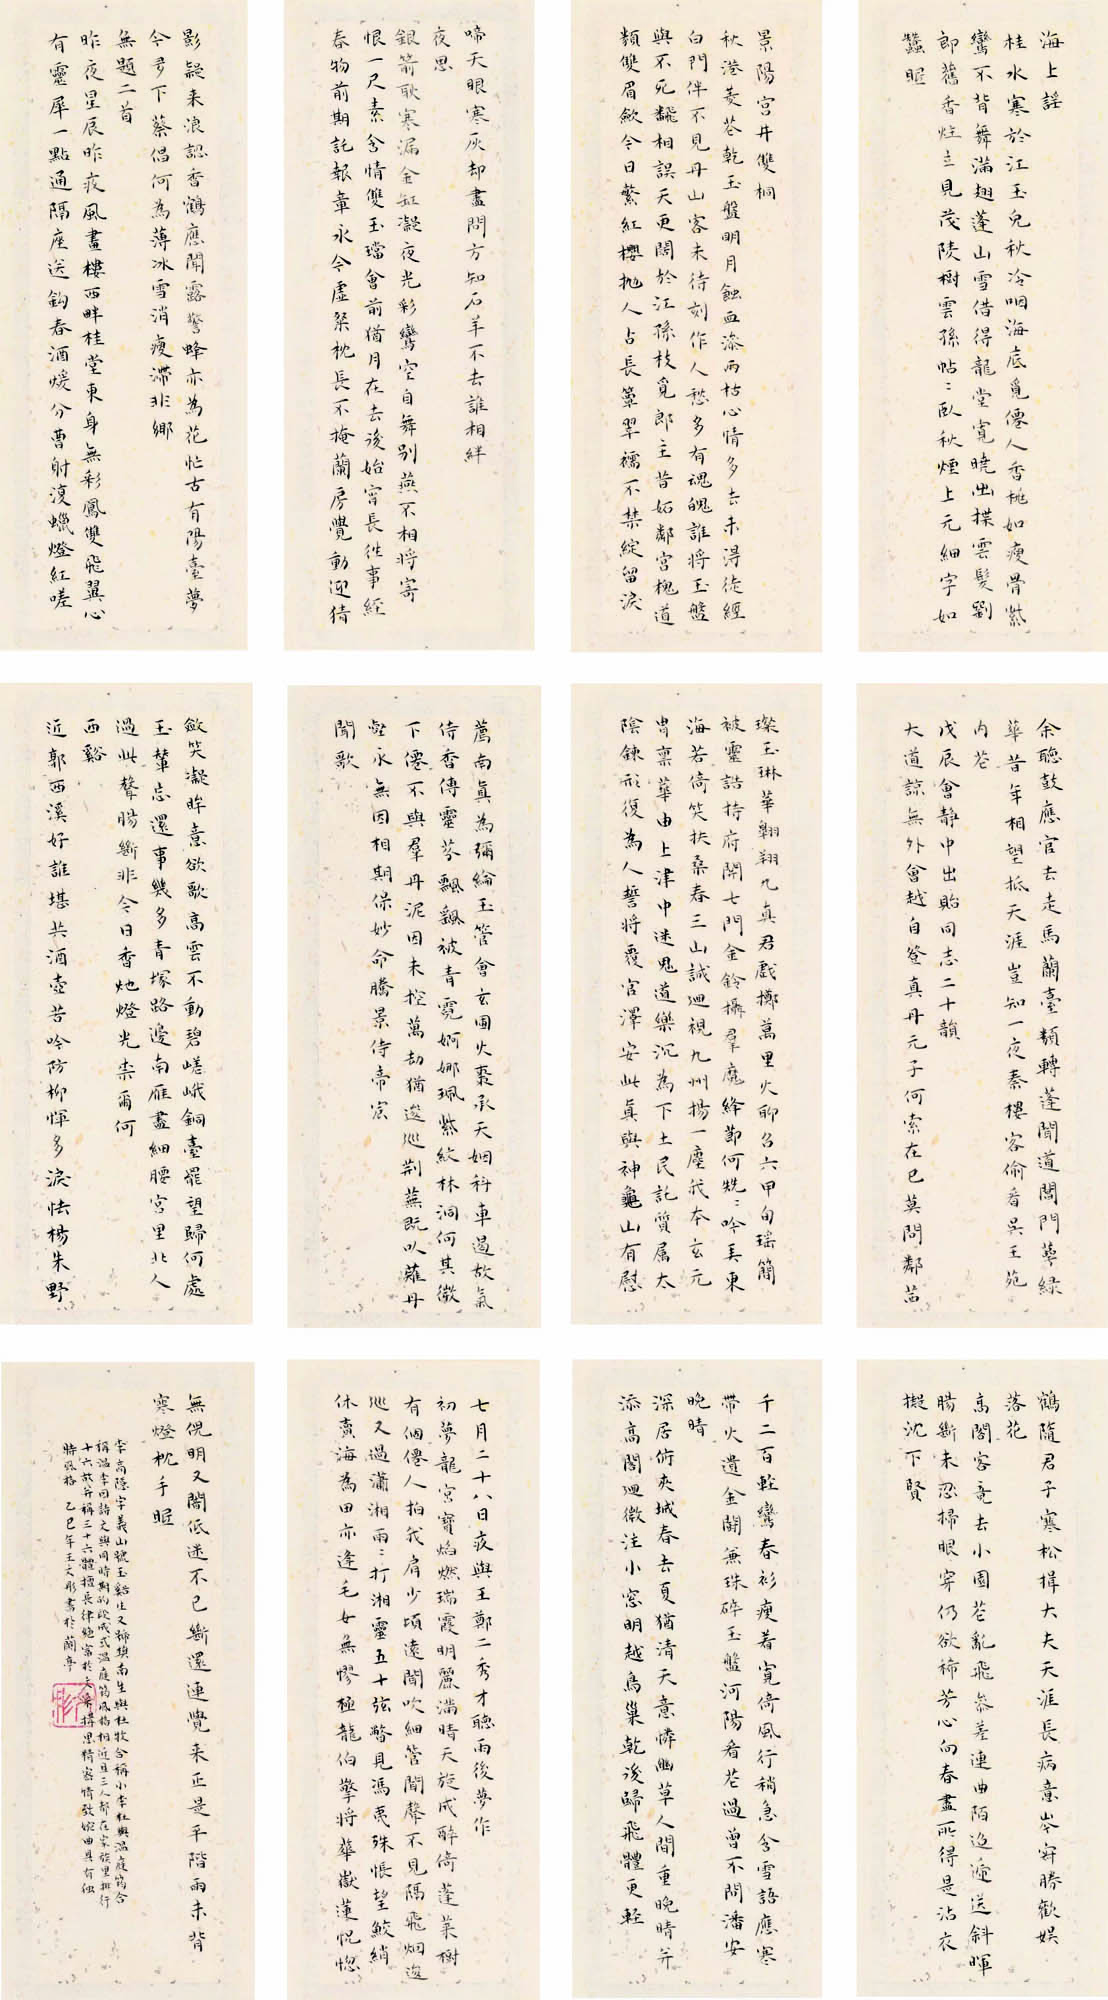 海上謠
桂水寒於江玉兔秋冷咽海底覓僊人香桃如瘦骨紫
鸞不背舞滿翅蓬山雪借得龍堂寛曉出揲雲髮劉
郎舊香炷立見茂陵樹雲孫帖〻臥秋煙上元細字如
蠶眠
景陽宮井雙桐
秋港菱花乾玉盤明月蝕血滲兩枯心情多去未得徒經
白門伴不見丹山客未待刻作人愁多有魂魄誰將玉盤
與不死飜相誤天更闊於江孫枝覓郎主昔妬鄰宮槐道
類雙眉斂今日繁紅櫻抛人占長簟翠襦不禁綻留淚
啼天眼寒灰却盡問方知石羊不去誰相絆
夜思
銀箭耿寒漏金缸凝夜光彩鸞空自舞别燕不相將寄
恨一尺素含情雙玉璫會前猶月在去後始宵長往事經
春物前期託報章永令虛粲枕長不掩蘭房覺動迎猜
影疑来浪認香鶴應聞露警蜂亦為花忙古有陽臺夢
今多下蔡倡何為薄冰雪消瘦滯非鄉
無題二首
昨夜星辰昨夜風畫樓西畔桂堂東身無彩鳳雙飛翼心
有靈犀一點通隔座送鈎春酒煖分曹射覆蠟燈紅嗟
余聽鼓應官去走馬蘭臺類轉蓬聞道閶門萼緑
華昔年相望抵天涯豈知一夜秦樓客偷看吳王苑
内花
戊辰會静中出貽同志二十韻
大道諒無外會越自登真丹元子何索在己莫問鄰茜
璨玉琳華翺翔九真君戲擲萬里火聊召六甲旬瑶簡
被靈誥持符開七門金鈴攝羣魔絳節何兟〻吟弄東
海若倚笑扶桑春三山誠迴視九州揚一塵我本玄元
胄禀華由上津中迷鬼道樂沉為下土民託質属太
陰鍊形復為人誓將覆宫澤安此真與神龜山有慰
薦南真為彌綸玉管會玄圃火棗承天姻科車過故氣
侍香傳靈芬飄飄被青霓婀娜珮紫紋林洞何其微
下僊不與羣丹泥因未控萬劫猶逡巡荆蕪既以薙丹
壑永無因相期保妙命騰景侍帝宸
聞歌
斂笑凝眸意欲歌高雲不動碧嵯峨銅臺罷望歸何處
玉輦忘還事幾多青塚路邊南雁盡細腰宮里北人
過此聲腸斷非今日香灺燈光柰爾何
西谿
近郭西溪好誰堪共酒壺苦吟防柳惲多淚怯楊朱野
鶴隨君子寒松揖大夫天涯長病意岑寂勝歡娱
落花
高閣客竟去小園花亂飛參差連曲陌迢遞送斜暉
腸斷未忍掃眼穿仍欲稀芳心向春盡所得是沾衣
擬沈下賢
千二百輕鸞春衫瘦着寛倚風行稍急含雪語應寒
帶火遺金鬬兼珠碎玉盤河陽看花過曾不問潘安
晚晴
深居俯夾城春去夏猶清天意憐幽草人間重晚晴并
添高閣迥微注小窓明越鳥巢乾後歸飛體更輕
七月二十八日夜與王鄭二秀才聽雨後夢作
初夢龍宮寶焰燃瑞霞明麗滿晴天旋成醉倚蓬莱樹
有個僊人拍我肩少頃遠聞吹細管聞聲不見隔飛烟逡
巡又過瀟湘雨〻打湘靈五十弦瞥見馮夷殊悵望鮫綃
休賣海為田亦逢毛女無憀極龍伯擎將華嶽蓮怳惚
無倪明又闇低迷不已斷還連覺来正是平階雨未背
寒燈枕手眠
李商隱字義山號玉谿生又稱樊南生與杜牧合稱小李杜與温庭筠合
稱温李因詩文與同時期的段成式温庭筠風格相近且三人都在家族里排行
十六故并稱三十六體擅長律絶富於文采構思精密情致婉曲具有独
特風格 乙巳年王文彤書於蘭亭